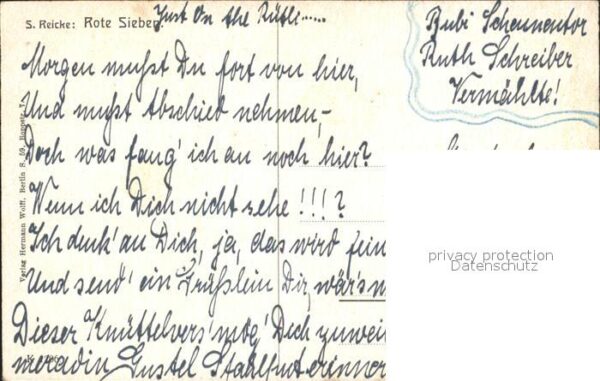 S. Reicke: Rote Sieben
Just On the Rütli.....
Rubi Schamentor
Ruth Schreiber
Vermählte!
Morgen mußt Du fort von hier,
Und mußt Abschied nehmen,-
Doch was fang' ich an noch hier?
Wenn ich Dich nicht sehe !!!?
Ich denk' an Dich, ja, das wird fein
Und send' ein Grüßlein Dir, wär's
Dieser Knüttelvers' mög' Dich zuwei
meradin Gustel Stahlhut erinner
Verlag Hermann Wolff, Berlin S. 59,
privacy protection
Datenschutz